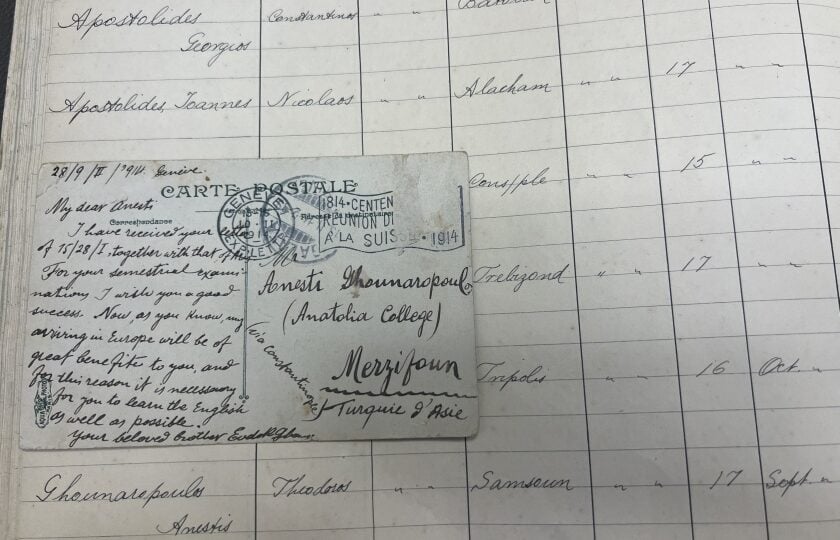 Apostolides Constantinos " "
Georgios
Apostolides, Ioannes Nicolaos " " Alacham " " 17 " "
Cons/ple " " 15 " "
Trebizond " " 17 " "
Tripolis " " 16 Oct. "
Ghounaropoulos Theodoros " " Samsoun " " 17 Sept. "
Anestis
28/9/II/1914. Genève.
CARTE POSTALE
Correspondance
Adresse du destinataire
My dear Anesti
I have received your letter
of 15/28/I, together with that of
For your semestrial exami-
nations I wish you a good
success. Now, as you know, my
arriving in Europe will be of
great benefits to you, and
for this reason it is necessary
for you to learn the English
as well as possible.
Your beloved brother
GENÈVE
EXP. LETT.
1814 • CENTEN
RÉUNION DE
A LA SUISSE • 1914
Mr
Anesti Ghounaropoulo
(Anatolia College)
(via Constantinople)
Merzifoun
Turquie d'Asie